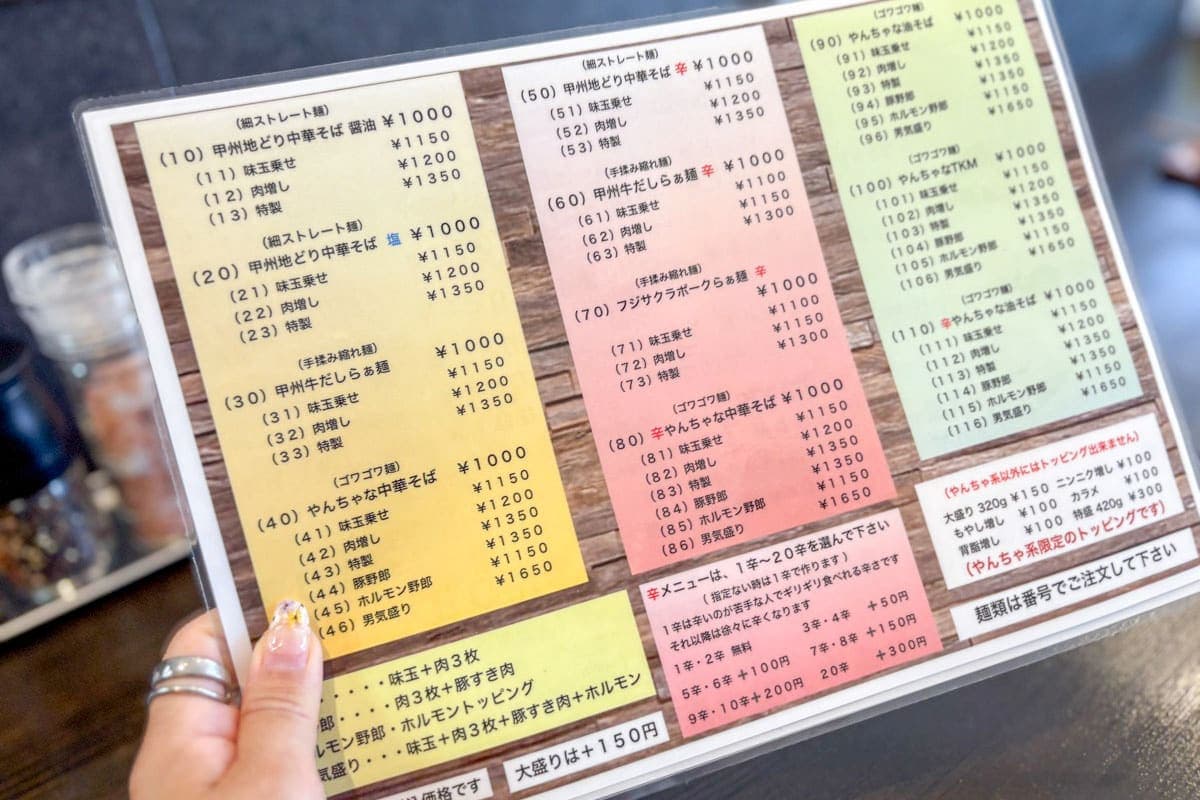 (細ストレート麺)
(10) 甲州地どり中華そば 醤油 ¥1000
(11) 味玉乗せ ¥1150
(12) 肉増し ¥1200
(13) 特製 ¥1350
(細ストレート麺)
(20) 甲州地どり中華そば 塩 ¥1000
(21) 味玉乗せ ¥1150
(22) 肉増し ¥1200
(23) 特製 ¥1350
(手揉み縮れ麺)
(30) 甲州牛だしらぁ麺 ¥1000
(31) 味玉乗せ ¥1150
(32) 肉増し ¥1200
(33) 特製 ¥1350
(ゴワゴワ麺)
(40) やんちゃな中華そば ¥1000
(41) 味玉乗せ ¥1150
(42) 肉増し ¥1200
(43) 特製 ¥1350
(44) 豚野郎 ¥1350
(45) ホルモン野郎 ¥1150
(46) 男気盛り ¥1650
・・・・味玉+肉3枚
郎・・・・肉3枚+豚すき肉
ルモン野郎・ホルモントッピング
気盛り・・味玉+肉3枚+豚すき肉+ホルモン
価格です
大盛りは+150円
(細ストレート麺)
(50) 甲州地どり中華そば 辛 ¥1000
(51) 味玉乗せ ¥1150
(52) 肉増し ¥1200
(53) 特製 ¥1350
(手揉み縮れ麺)
(60) 甲州牛だしらぁ麺 辛 ¥1000
(61) 味玉乗せ ¥1100
(62) 肉増し ¥1150
(63) 特製 ¥1300
(手揉み縮れ麺)
(70) フジサクラポークらぁ麺 辛 ¥1000
(71) 味玉乗せ ¥1100
(72) 肉増し ¥1150
(73) 特製 ¥1300
(ゴワゴワ麺)
(80) 辛やんちゃな中華そば ¥1000
(81) 味玉乗せ ¥1150
(82) 肉増し ¥1200
(83) 特製 ¥1350
(84) 豚野郎 ¥1350
(85) ホルモン野郎 ¥1150
(86) 男気盛り ¥1650
辛メニューは、1辛〜20辛を選んで下さい
(指定ない時は1辛で作ります)
1辛は辛いのが苦手な人でギリギリ食べれる辛さです
それ以降は徐々に辛くなります
1辛・2辛 無料 3辛・4辛 +50円
5辛・6辛 +100円 7辛・8辛 +150円
9辛・10辛+200円 20辛 +300円
(ゴワゴワ麺)
(90) やんちゃな油そば ¥1000
(91) 味玉乗せ ¥1150
(92) 肉増し ¥1200
(93) 特製 ¥1350
(94) 豚野郎 ¥1350
(95) ホルモン野郎 ¥1150
(96) 男気盛り ¥1650
(ゴワゴワ麺)
(100) やんちゃなTKM ¥1000
(101) 味玉乗せ ¥1150
(102) 肉増し ¥1200
(103) 特製 ¥1350
(104) 豚野郎 ¥1350
(105) ホルモン野郎 ¥1150
(106) 男気盛り ¥1650
(ゴワゴワ麺)
(110) 辛やんちゃな油そば ¥1000
(111) 味玉乗せ ¥1150
(112) 肉増し ¥1200
(113) 特製 ¥1350
(114) 豚野郎 ¥1350
(115) ホルモン野郎 ¥1150
(116) 男気盛り ¥1650
(やんちゃ系以外にはトッピング出来ません)
大盛り 320g ¥150 ニンニク増し ¥100
もやし増し ¥100 カラメ ¥100
背脂増し ¥100 特盛 420g ¥300
(やんちゃ系限定のトッピングです)
麺類は番号でご注文して下さい